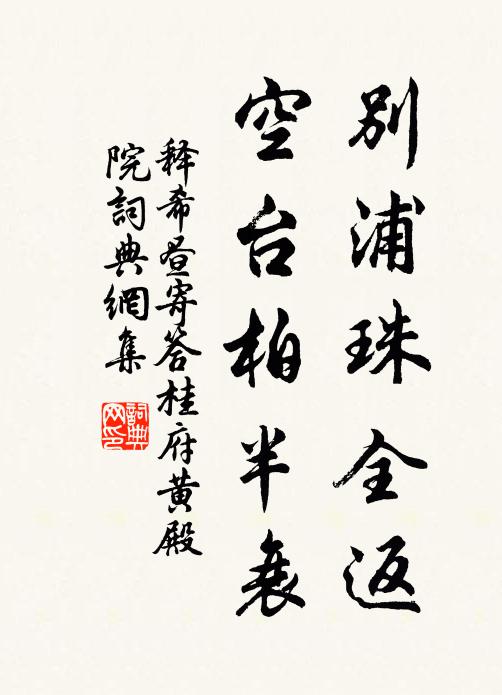 别浦珠全返
空台柏半衰
释希昼寄答桂府黄殿
院詞典網集
詞典
网印